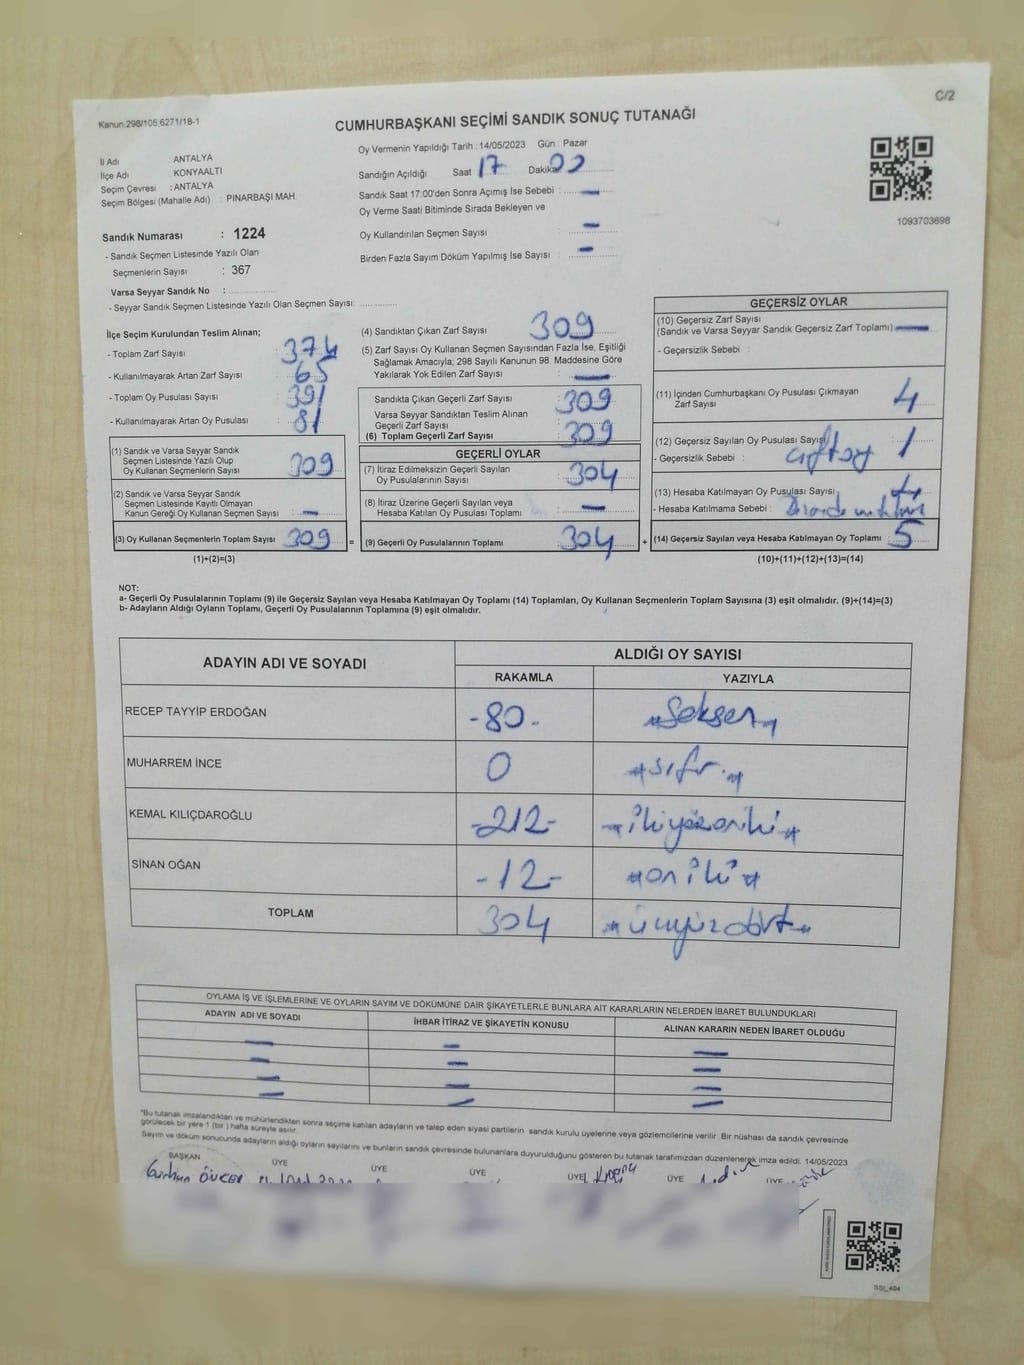 C/2
Kanun:298/105;6271/18-1
CUMHURBAŞKANI SEÇİMİ SANDIK SONUÇ TUTANAĞI
İl Adı : ANTALYA
İlçe Adı : KONYAALTI
Seçim Çevresi : ANTALYA
Seçim Bölgesi (Mahalle Adı) : PINARBAŞI MAH.
Sandık Numarası : 1224
- Sandık Seçmen Listesinde Yazılı Olan
Seçmenlerin Sayısı : 367
Varsa Seyyar Sandık No : ..............
- Seyyar Sandık Seçmen Listesinde Yazılı Olan Seçmen Sayısı: ............
Oy Vermenin Yapıldığı Tarih : 14/05/2023 Gün : Pazar
Sandığın Açıldığı Saat 17 Dakika
Sandık Saat 17:00'den Sonra Açımış İse Sebebi : —
Oy Verme Saati Bitiminde Sırada Bekleyen ve
Oy Kullandırılan Seçmen Sayısı : —
Birden Fazla Sayım Döküm Yapılmış İse Sayısı : —
1093703698
İlçe Seçim Kurulundan Teslim Alınan;
- Toplam Zarf Sayısı : 374
- Kullanılmayarak Artan Zarf Sayısı : 65
- Toplam Oy Pusulası Sayısı : 391
- Kullanılmayarak Artan Oy Pusulası : 81
(1) Sandık ve Varsa Seyyar Sandık
Seçmen Listesinde Yazılı Olup
Oy Kullanan Seçmenlerin Sayısı 309
(2) Sandık ve Varsa Seyyar Sandık
Seçmen Listesinde Kayıtlı Olmayan
Kanun Gereği Oy Kullanan Seçmen Sayısı —
(3) Oy Kullanan Seçmenlerin Toplam Sayısı 309 =
(1)+(2)=(3)
(4) Sandıktan Çıkan Zarf Sayısı : 309
(5) Zarf Sayısı Oy Kullanan Seçmen Sayısından Fazla İse, Eşitliği
Sağlamak Amacıyla; 298 Sayılı Kanunun 98. Maddesine Göre
Yakılarak Yok Edilen Zarf Sayısı : —
Sandıkta Çıkan Geçerli Zarf Sayısı : 309
Varsa Seyyar Sandıktan Teslim Alınan
Geçerli Zarf Sayısı :
(6) Toplam Geçerli Zarf Sayısı : 309
GEÇERLİ OYLAR
(7) İtiraz Edilmeksizin Geçerli Sayılan
Oy Pusulalarının Sayısı : 304
(8) İtiraz Üzerine Geçerli Sayılan veya
Hesaba Katılan Oy Pusulası Toplamı : —
(9) Geçerli Oy Pusulalarının Toplamı 304 +
GEÇERSİZ OYLAR
(10) Geçersiz Zarf Sayısı
(Sandık ve Varsa Seyyar Sandık Geçersiz Zarf Toplamı) —
- Geçersizlik Sebebi :
(11) İçinden Cumhurbaşkanı Oy Pusulası Çıkmayan
Zarf Sayısı 4
(12) Geçersiz Sayılan Oy Pusulası Sayısı 1
- Geçersizlik Sebebi :
(13) Hesaba Katılmayan Oy Pusulası Sayısı
- Hesaba Katılmama Sebebi :
(14) Geçersiz Sayılan veya Hesaba Katılmayan Oy Toplamı 5
(10)+(11)+(12)+(13)=(14)
NOT:
a- Geçerli Oy Pusulalarının Toplamı (9) ile Geçersiz Sayılan veya Hesaba Katılmayan Oy Toplamı (14) Toplamları, Oy Kullanan Seçmenlerin Toplam Sayısına (3) eşit olmalıdır. (9)+(14)=(3)
b- Adayların Aldığı Oyların Toplamı, Geçerli Oy Pusulalarının Toplamına (9) eşit olmalıdır.
ADAYIN ADI VE SOYADI ALDIĞI OY SAYISI
RAKAMLA YAZIYLA
RECEP TAYYİP ERDOĞAN -80- seksen
MUHARREM İNCE 0 sıfır
KEMAL KILIÇDAROĞLU -212- ikiyüzoniki
SİNAN OĞAN -12- oniki
TOPLAM 304 üçyüzdört
OYLAMA İŞ VE İŞLEMLERİNE VE OYLARIN SAYIM VE DÖKÜMÜNE DAİR ŞİKAYETLERLE BUNLARA AİT KARARLARIN NELERDEN İBARET BULUNDUKLARI
ADAYIN ADI VE SOYADI İHBAR İTİRAZ VE ŞİKAYETİN KONUSU ALINAN KARARIN NEDEN İBARET OLDUĞU
— — —
— — —
— — —
— — —
*Bu tutanak imzalandıktan ve mühürlendikten sonra seçime katılan adayların ve talep eden siyasi partilerin sandık kurulu üyelerine veya gözlemcilerine verilir. Bir nüshası da sandık çevresinde
görülecek bir yere 1 (bir) hafta süreyle asılır.
Sayım ve döküm sonucunda adayların aldığı oyların sayılarını ve bunların sandık çevresinde bulunanlara duyurulduğunu gösteren bu tutanak tarafımızdan düzenlenerek imza edildi. 14/05/2023
BAŞKAN ÜYE ÜYE ÜYE ÜYE ÜYE ÜYE